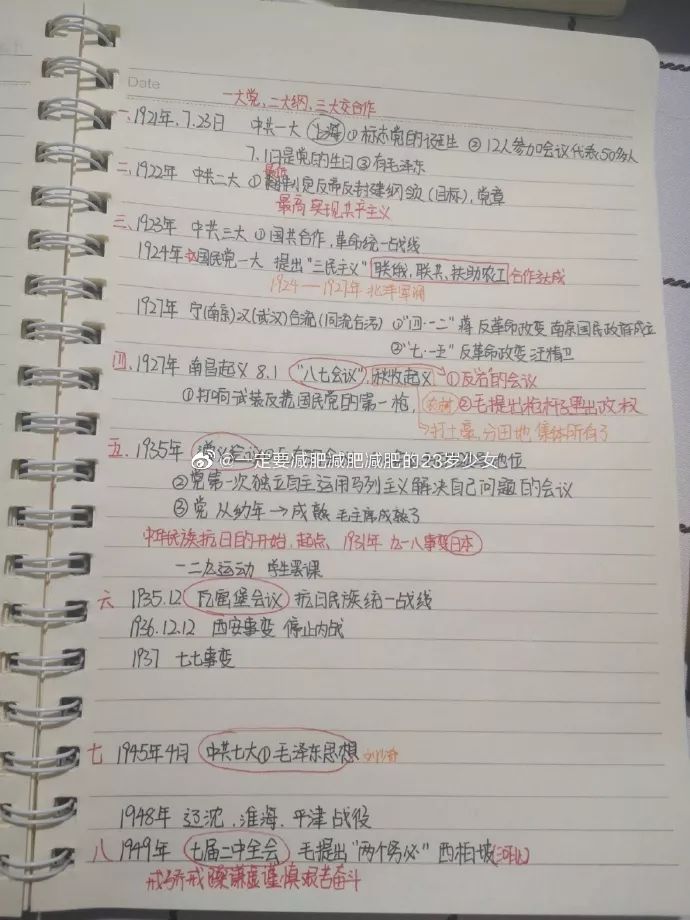 Date
一大党、二大纲、三大交合作
一、1921年.7.23日 中共一大 上海 ①标志党的诞生 ②12人参加会议代表50多人
7.1日是党的生日 ③有毛泽东
二、1922年 中共二大 ① 制定反帝反封建纲领(目标),党章
最高 实现共产主义
三、1923年 中共三大 ①国共合作,革命统一战线
1924年 国民党一大 提出"三民主义" 联俄,联共,扶助农工 合作达成
1924—1927年 北洋军阀
1927年 宁(南京)汉(武汉)合流(同流合污) ①"四·一二"蒋 反革命政变 南京国民政府成立
②"七·一五"反革命政变 汪精卫
四、1927年 南昌起义 8.1 "八七会议",秋收起义 ①反右的会议
①打响武装反抗国民党的第一枪, ②毛提出枪杆子里出政权
打土豪,分田地 集体所有了
五、1935年 遵义会议 地位
@一定要减肥减肥减肥的23岁少女
②党第一次独立自主运用马列主义解决自己问题的会议
③党 从幼年→成熟 毛主席成熟了
中华民族抗日的开始,起点 1931年 九一八事变 日本
一二九运动 学生罢课
六 1935.12 瓦窑堡会议 抗日民族统一战线
1936.12.12 西安事变 停止内战
1937 七七事变
七 1945年4月 中共七大① 毛泽东思想 刘少奇
1948年 辽沈、淮海、平津战役
八 1949年 七届二中全会 毛提出"两个务必" 西柏坡(河北)
戒骄戒躁 谦虚谨慎 艰苦奋斗